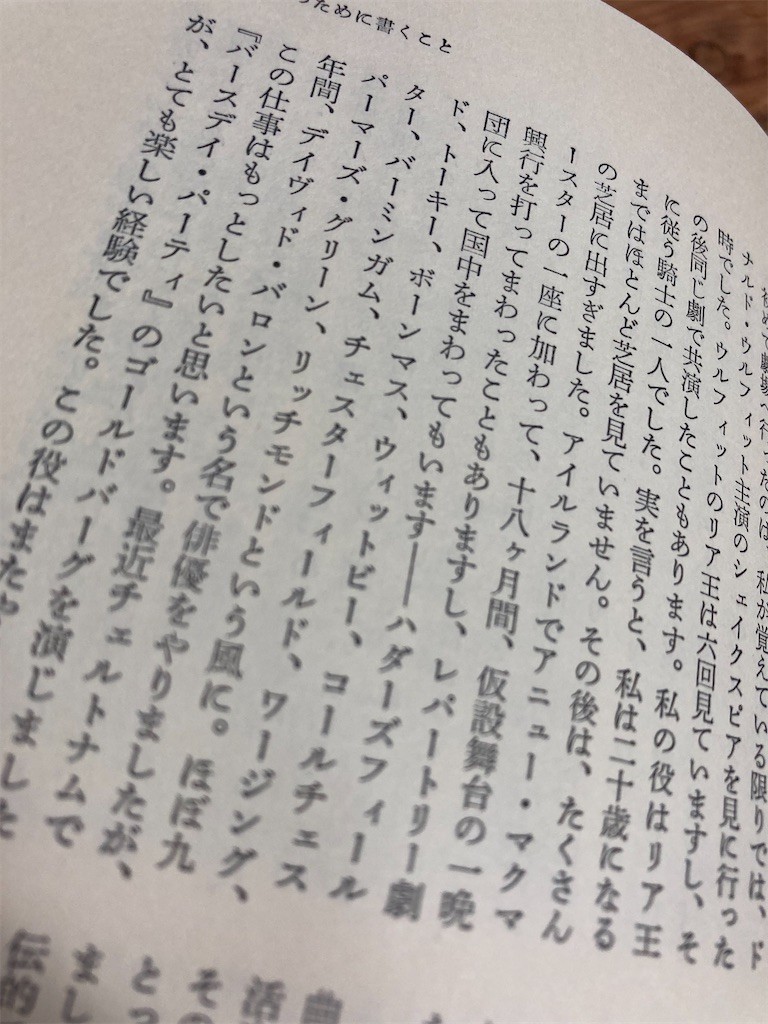 ために書くこと
初めて劇場へ行ったのは、私が覚えている限りでは、ド
ナルド・ウルフィット主演のシェイクスピアを見に行った
時でした。ウルフィットのリア王は六回見ていますし、そ
の後同じ劇で共演したこともあります。私の役はリア王
に従う騎士の一人でした。実を言うと、私は二十歳になる
まではほとんど芝居を見ていません。その後は、たくさん
の芝居に出すぎました。アイルランドでアニュー・マクマ
ースターの一座に加わって、十八ヶ月間、仮設舞台の一晩
興行を打ってまわったこともありますし、レパートリー劇
団に入って国中をまわってもいます――ハダーズフィール
ド、トーキー、ボーンマス、ウィットビー、コールチェス
ター、バーミンガム、チェスターフィールド、ワージング、
パーマーズ・グリーン、リッチモンドという風に。ほぼ九
年間、デイヴィド・バロンという名で俳優をやりましたが、
この仕事はもっとしたいと思います。最近チェルトナムで
『バースデイ・パーティ』のゴールドバーグを演じました
が、とても楽しい経験でした。この役はまたや
た
曲
活
その
とっ
まし
伝的